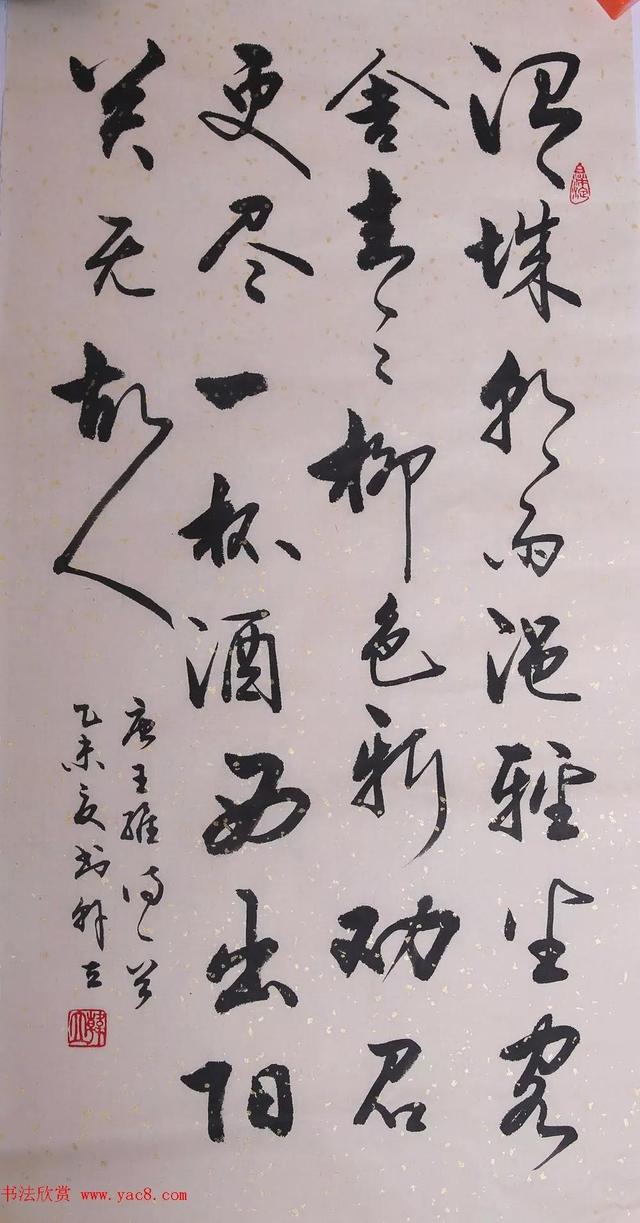 渭城朝雨浥輕尘客
舍青々柳色新劝君
更尽一杯酒西出阳
关无故人
唐王維诗
乙未夏书韩立
书法欣赏 www.yac8.com